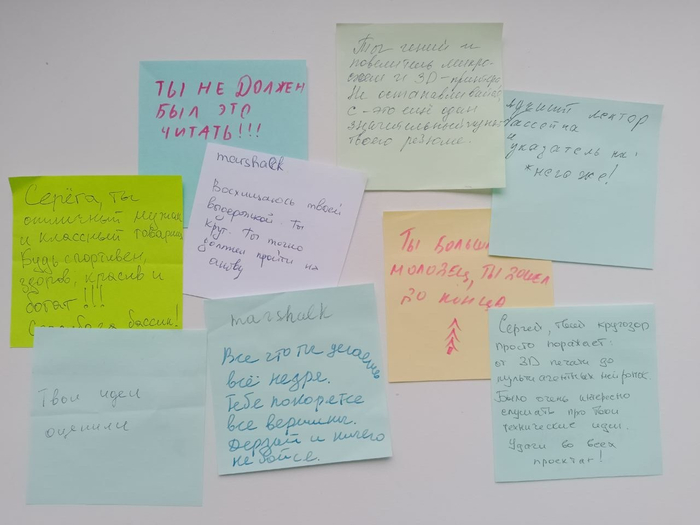 ТЫ НЕ ДОЛЖЕН
БЫЛ ЭТО
ЧИТАТЬ!!!
Ты гений и
повелитель микро-
схем и 3D-принтера
Не останавливайся
с - это ещё один
значительный пункт
твоего резюме.
лектор
бассейна
и
указатель на:
*негоже!
marshalk
Восхищаюсь твоей
выдержкой. Ты
крут. Ты точно
должен пройти на
Серёга, ты
отличный мужик
и классный товарищ
Будь спортивен,
здоров, красив и
богат!!!
бассиа!
Ты больш
молодец, ты дошел
до конца
marshalk
Все что ты делаешь
всё не зря.
Тебе покорятся
все вершины.
Дерзай и ничего
не бойся.
Сергей, твой кругозор
просто поражает:
от 3D печати до
мультиагентных нейронок.
Было очень интересно
слушать про твои
технические идеи.
Удачи во всех
проектах!
Твои идеи
оценили